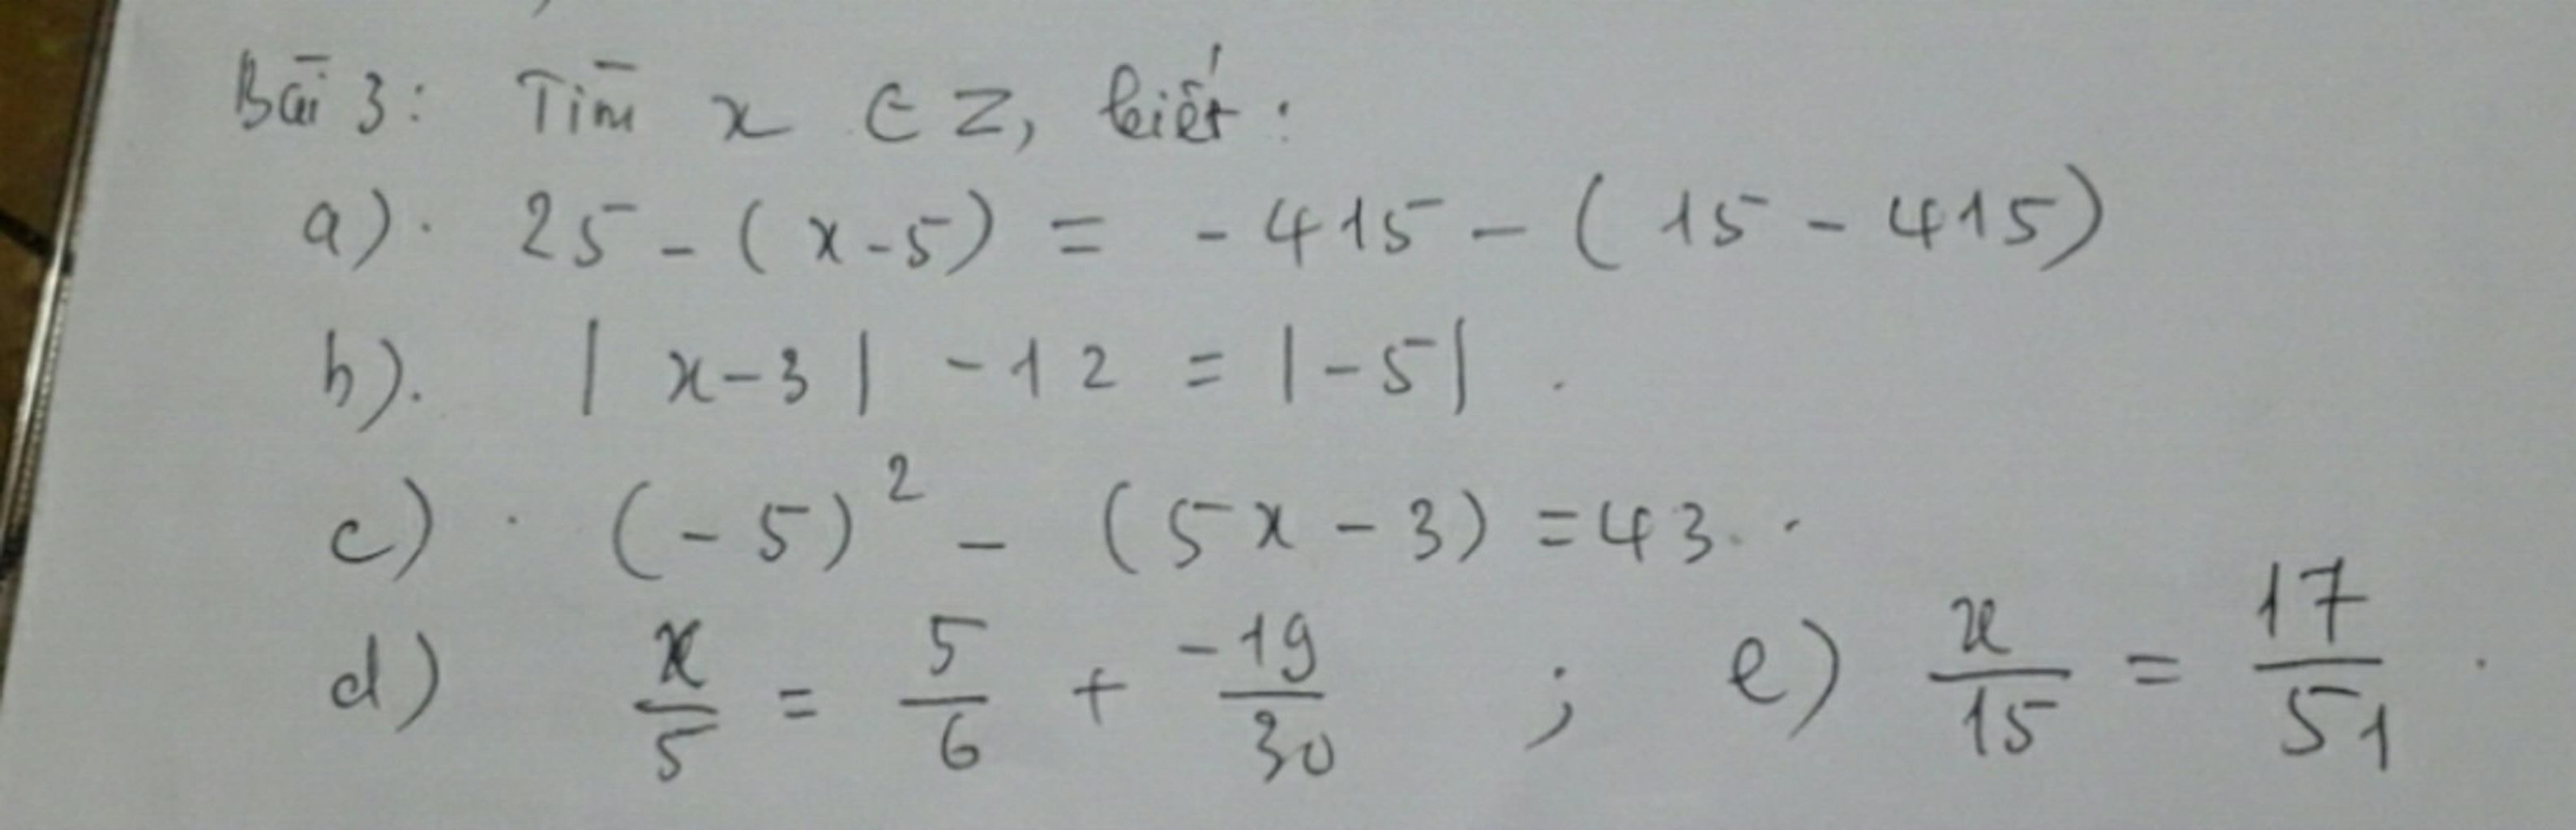 Bài 3: Tìm x ∈ Z, biết:
a). 25 - (x-5) = -415 - (15 - 415)
b). |x-3| - 12 = |-5|.
c). (-5)² - (5x - 3) = 43.
d) x/5 = 5/6 + -19/30 ; e) x/15 = 17/51.